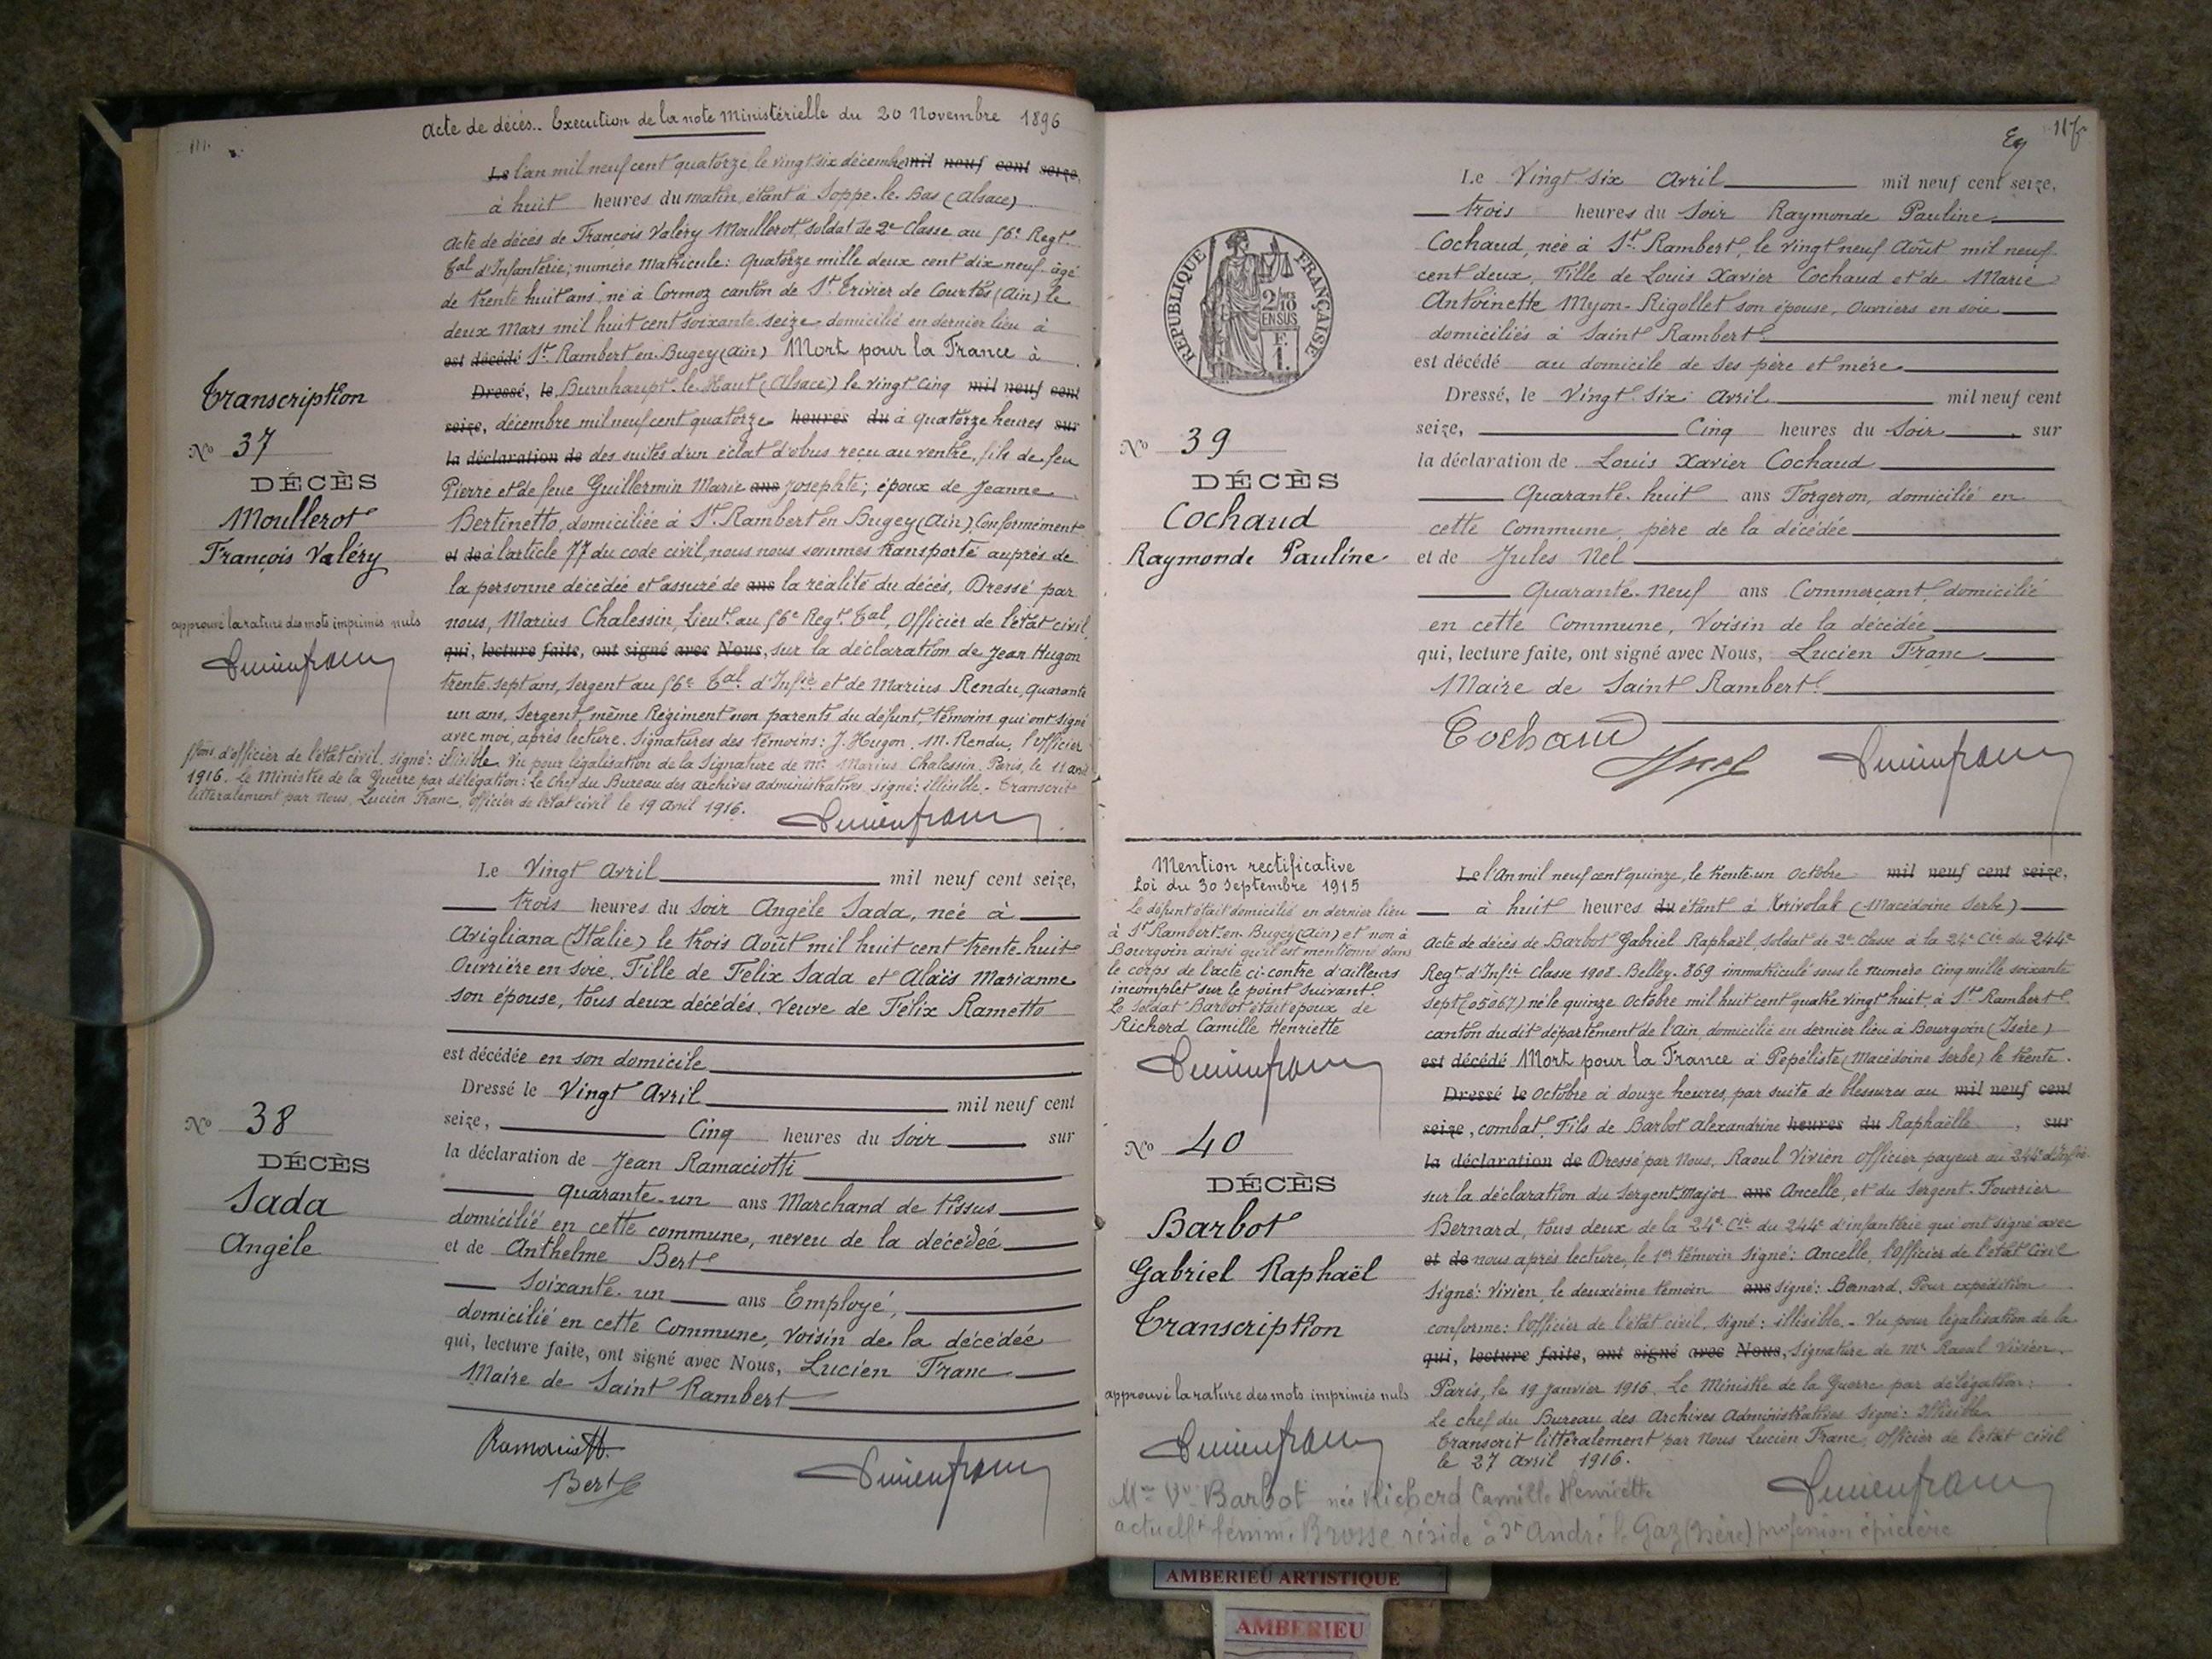 Acte de décès.. Execution de la note Ministérielle du 20 Novembre 1896
Le l'an mil neuf cent quatorze, le vingt six décembre mil neuf cent seize,
à huit heures du matin, étant à Soppe-le-Bas (Alsace)
Acte de décès de François Valéry Moullerot, soldat de 2e Classe au 56e Regt
Tal d'Infanterie; numéro Matricule: Quatorze mille deux cent dix neuf- âgé
de trente huit ans, né à Cormoz canton de St Trivier de Courtes (Ain) le
deux Mars mil huit cent soixante-seize domicilié en dernier lieu à
est décédé St Rambert en-Bugey (Ain) Mort pour la France à
Dressé, le Burnhaupt-le-Haut (Alsace) le vingt cinq mil neuf cent
seize, décembre mil neuf cent quatorze heures du à quatorze heures sur
la déclaration de des suites d'un éclat d'obus reçu au ventre, fils de feu
Pierre et de feue Guillermin Marie ans Josephte; époux de Jeanne
Bertinetto, domiciliée à St Rambert en Bugey (Ain) Conformément
et de à l'article 77 du code civil, nous nous sommes transporté auprès de
la personne décédée et assuré de ans la réalité du décès, Dressé par
nous, Marius Chalessin, Lieut. au 56e Regt Tal, Officier de l'état civil,
qui, lecture faite, ont signé avec Nous, sur la déclaration de Jean Hugon
trente-sept ans, Sergent au 56e Tal d'Infie et de Marius Rendu, quarante
un ans, Sergent, même Régiment non parents du défunt, témoins qui ont signé
avec moi, après lecture. Signatures des témoins: J. Hugon, M. Rendu, l'officier
ffons d'officier de l'état civil. signé: illisible. Vu pour légalisation de la Signature de Mr Marius Chalessin. Paris, le 11 avril
1916. Le Ministre de la Guerre par délégation: Le Chef du Bureau des archives administratives, signé: illisible.- Transcrit
littéralement par Nous, Lucien Franc, Officier de l'état civil le 19 avril 1916.
Lucien Franc
Transcription
No 37
DÉCÈS
Moullerot
François Valéry
approuvé la rature des mots imprimés nuls
Lucien Franc
Le Vingt Avril mil neuf cent seize,
trois heures du Soir Angèle Sada, née à
Avigliana (Italie) le trois Août mil huit cent trente-huit
Ouvrière en Soie, Fille de Felix Sada et Alaïs Marianne
son épouse, tous deux décédés. Veuve de Félix Rametto
est décédée en son domicile
Dressé le Vingt Avril mil neuf cent
seize, Cinq heures du Soir sur
la déclaration de Jean Ramaciotti
quarante-un ans Marchand de tissus
domicilié en cette commune, neveu de la décédée
et de Anthelme Bert
Soixante-un ans Employé,
domicilié en cette Commune, voisin de la décédée
qui, lecture faite, ont signé avec Nous, Lucien Franc
Maire de Saint Rambert
Ramaciotti
Bert
Lucien Franc
No 38
DÉCÈS
Sada
Angèle
Le Vingt-six Avril mil neuf cent seize,
trois heures du Soir Raymonde Pauline
Cochaud, née à St Rambert, le vingt neuf Août mil neuf
cent deux, Fille de Louis Xavier Cochaud et de Marie
Antoinette Myon-Rigollet son épouse, Ouvriers en soie
domiciliés à Saint Rambert
est décédé au domicile de ses père et mère
Dressé, le Vingt-Six Avril mil neuf cent
seize, Cinq heures du Soir sur
la déclaration de Louis Xavier Cochaud
Quarante-huit ans Forgeron, domicilié en
cette Commune, père de la décédée
et de Jules Nel
Quarante-neuf ans Commerçant, domicilié
en cette Commune, Voisin de la décédée
qui, lecture faite, ont signé avec Nous, Lucien Franc
Maire de Saint Rambert
Cochaud
Lucien Franc
RÉPUBLIQUE FRANÇAISE
2/10
EN SUS
F.
1.
No 39
DÉCÈS
Cochaud
Raymonde Pauline
Mention rectificative
Loi du 30 Septembre 1915
Le défunt était domicilié en dernier lieu
à St Rambert-en-Bugey (Ain) et non à
Bourgoin ainsi qu'il est mentionné dans
le corps de l'acte ci-contre d'ailleurs
incomplet sur le point suivant:
Le Soldat Barbot était époux de
Richerd Camille Henriette
Lucien Franc
No 40
DÉCÈS
Barbot
Gabriel Raphaël
Transcription
approuvé la rature des mots imprimés nuls
Lucien Franc
Le l'An mil neuf cent quinze, le trente-un Octobre mil neuf cent seize,
à huit heures du étant à Krivolak (Macédoine Serbe)
Acte de décès de Barbot Gabriel Raphaël Soldat de 2e Classe à la 24e Cie du 244e
Regt d'Infie Classe 1908-Belley-869 immatriculé sous le numéro Cinq mille soixante
sept (05067) né le quinze Octobre mil huit cent quatre vingt huit, à St Rambert
canton dudit département de l'Ain, domicilié en dernier lieu à Bourgoin (Isère)
est décédé Mort pour la France à Pepeliste (Macédoine Serbe) le trente
Dressé le Octobre à douze heures, par suite de blessures au mil neuf cent
seize, combat, Fils de Barbot Alexandrine heures du Raphaëlle, sur
la déclaration de Dressé par Nous, Raoul Vivien Officier payeur au 244e d'Infie
sur la déclaration du Sergent Major ans Ancelle, et du Sergent-Fourrier
Bernard, tous deux de la 24e Cie du 244e d'infanterie qui ont signé avec
et de nous après lecture, le 1er témoin Signé: Ancelle, l'Officier de l'état Civil
Signé: Vivien, le deuxième témoin ans Signé: Bernard, Pour expédition
conforme: l'officier de l'état civil. Signé: illisible.- Vu pour légalisation de la
qui, lecture faite, ont signé avec Nous, Signature de Mr Raoul Vivien.
Paris, le 19 Janvier 1916. Le Ministre de la Guerre par délégation:
Le chef du Bureau des Archives Administratives Signé: Illisible
Transcrit littéralement par Nous Lucien Franc, Officier de l'état civil
le 27 Avril 1916.
Lucien Franc
Mme Vve Barbot née Richerd Camille Henriette
actuellt femme Brosse réside à St André le Gaz (Isère) profession épicière
AMBERIEU ARTISTIQUE
AMBERIEU